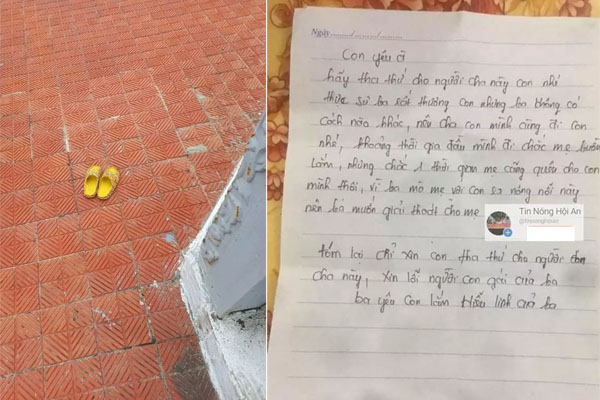 Ngày............/............/............
Con yêu à
hãy tha thứ cho người cha này con nhé
thực sự ba rất thương con nhưng ba không có
cách nào khác, nên cha con mình cùng đi con
nhé, khoảng thời gia đầu mình đi chắc mẹ buồn
lắm, nhưng chắc 1 thời gian mẹ cũng quên cha con
mình thôi, vì ba mà mẹ với con ra nông nổi này
nên ba muốn giải thoát cho mẹ
Tin Nóng Hội An
tóm lại chỉ xin con tha thứ cho người
cha này, xin lỗi người con gái của ba
ba yêu con lắm Hiểu linh của ba